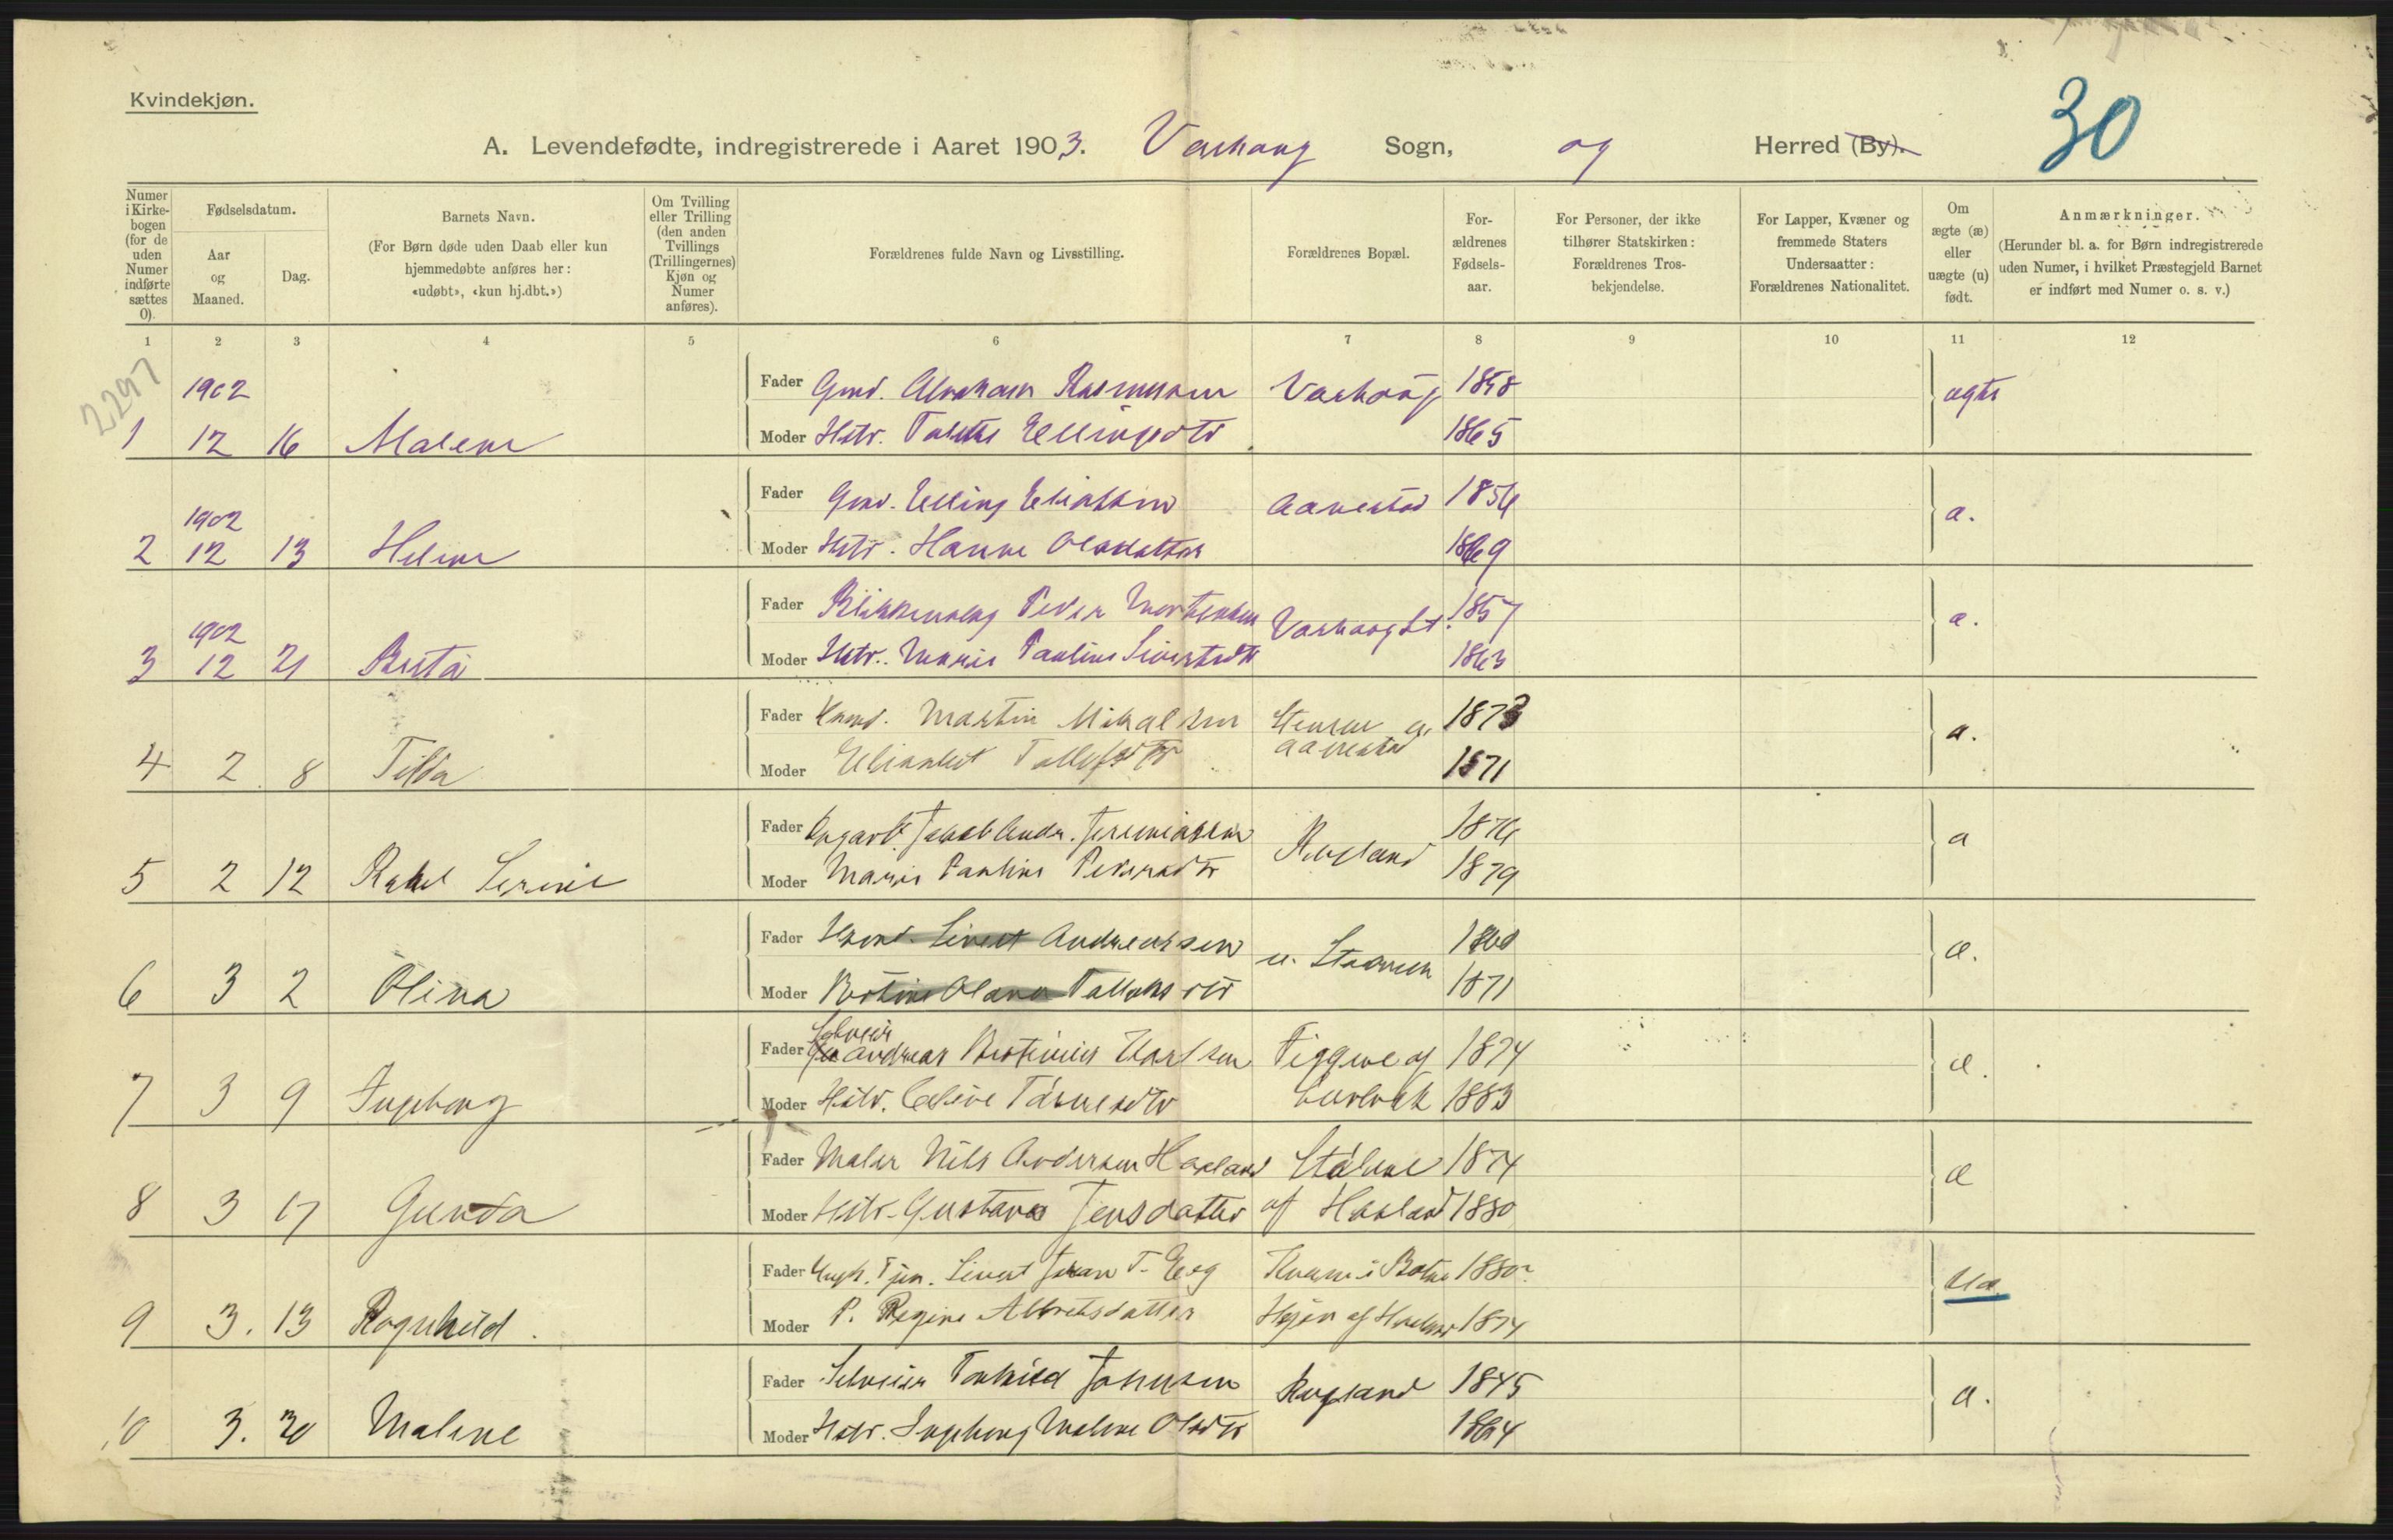 Kvindekjøn.
30
A. Levendefødte, indregistrerede i Aaret 1903. Varhaug Sogn, og Herred (By).
Numer i Kirkebogen (for de uden Numer indførte sættes 0).
Fødselsdatum.
Aar og Maaned.
Dag.
Barnets Navn.
(For Børn døde uden Daab eller kun hjemmedøbte anføres her: «udøbt», «kun hj.dbt.»)
Om Tvilling eller Trilling (den anden Tvillings (Trillingernes) Kjøn og Numer anføres).
Forældrenes fulde Navn og Livsstilling.
Forældrenes Bopæl.
Forældrenes Fødselsaar.
For Personer, der ikke tilhører Statskirken: Forældrenes Trosbekjendelse.
For Lapper, Kvæner og fremmede Staters Undersaatter: Forældrenes Nationalitet.
Om ægte (æ) eller uægte (u) født.
Anmærkninger.
(Herunder bl. a. for Børn indregistrerede uden Numer, i hvilket Præstegjeld Barnet er indført med Numer o. s. v.)
1 2 3 4 5 6 7 8 9 10 11 12
2297
1902 Fader Gmd. Abraham Rasmussen Varhaug 1858 ægte
1 12 16 Malene Moder Hstr. Ellingsdtr 1865
1902 Fader Gmd. Elling Eliassen Aarestad 1856 æ.
2 12 13 Helene Moder Hstr. Hanne Olsdatter 1869
1902 Fader Peder Mortensen Varhaug St. 1857 æ.
3 12 21 Berta Moder Hstr. Marie Pauline Sivertsdtr 1863
Fader Martin Mikalsen Aarestad 1873 æ.
4 2 8 Tilda Moder Elisabet 1871
Fader Jakob Andr. Jeremiassen Rogland 1876 æ
5 2 12 Rakel Serine Moder Marie Pauline Pedersdtr 1879
Fader Sivert Andreassen 1860 æ.
6 3 2 Olina Moder Bertine Olava 1871
Selveier
Fader Andreas Bertinius Karlsen af 1874 æ.
7 3 9 Ingeborg Moder Hstr. 1883
Fader Maler Nils Andersen Haaland 1874 æ
8 3 17 Gunda Moder Hstr. Gustava Jensdatter af Haaland 1880
Fader Ungk. Tjen. Sivert Johan T. Eeg 1880 uæ.
9 3. 13 Ragnhild. Moder P. Regine Albretsdatter af 1874
Fader Selveier Torkild Johnsen Rogland 1845 æ.
10 3. 30 Malene Moder Hstr. Ingeborg Malene Olsdtr 1864